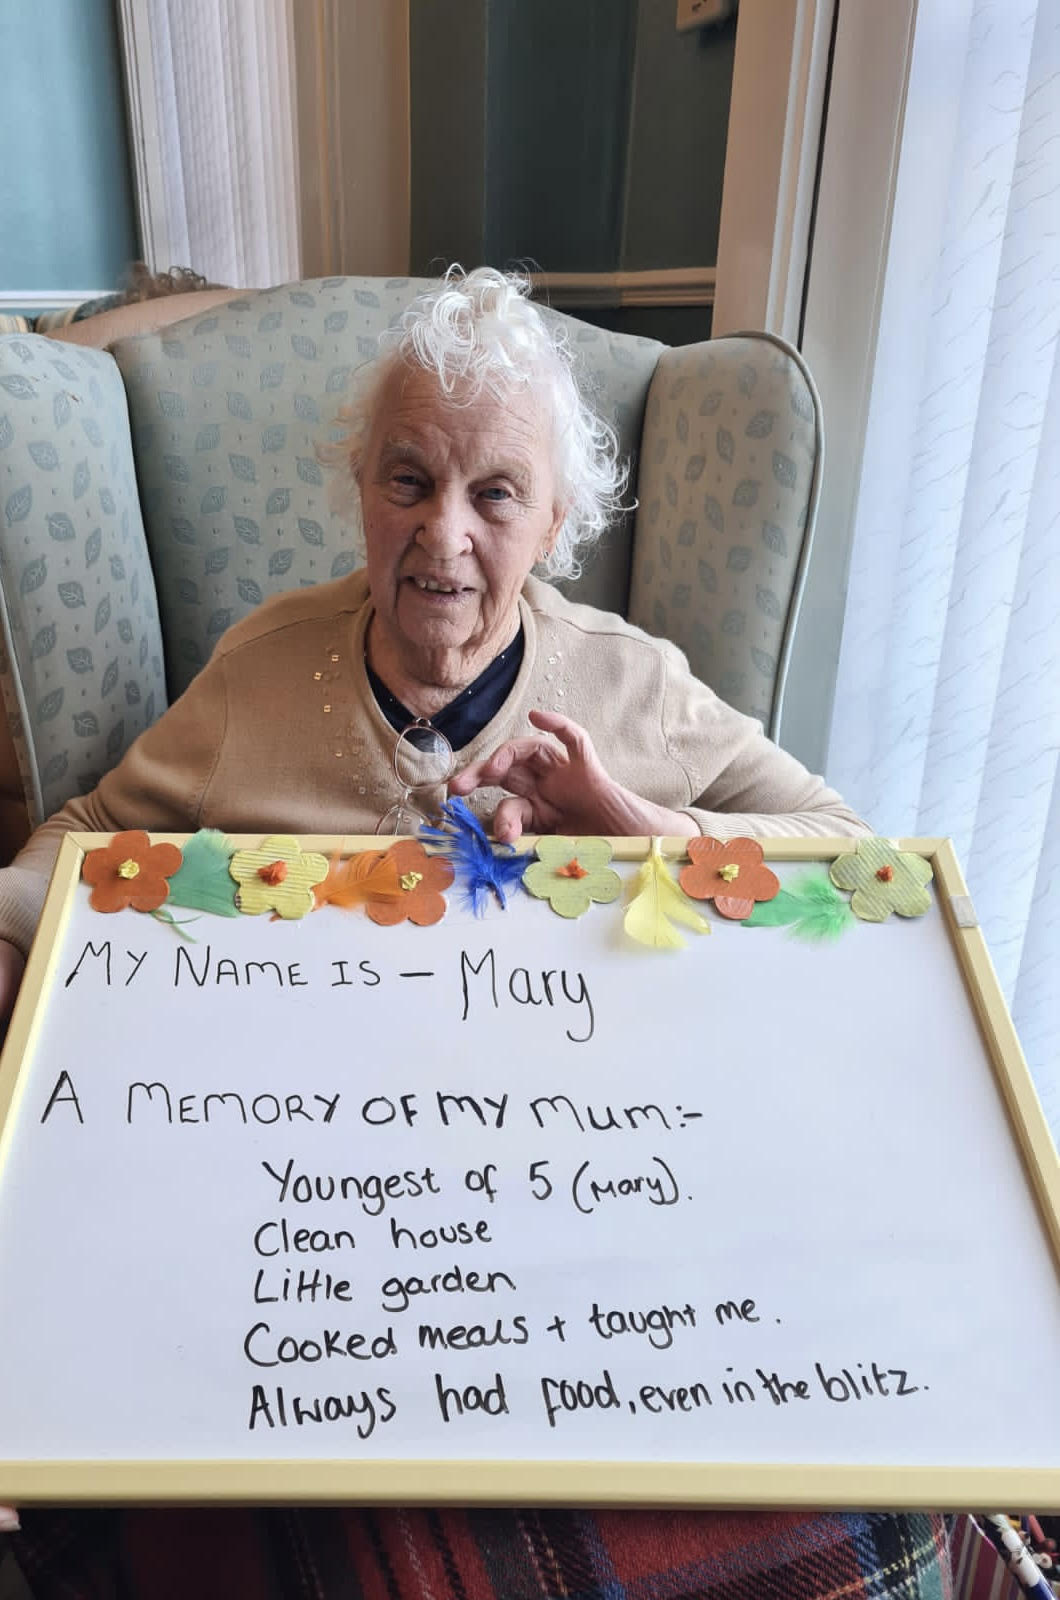 MY NAME IS - Mary
A MEMORY OF MY MUM:-
Youngest of 5 (Mary).
Clean house
Little garden
Cooked meals + taught me.
Always had food, even in the blitz.